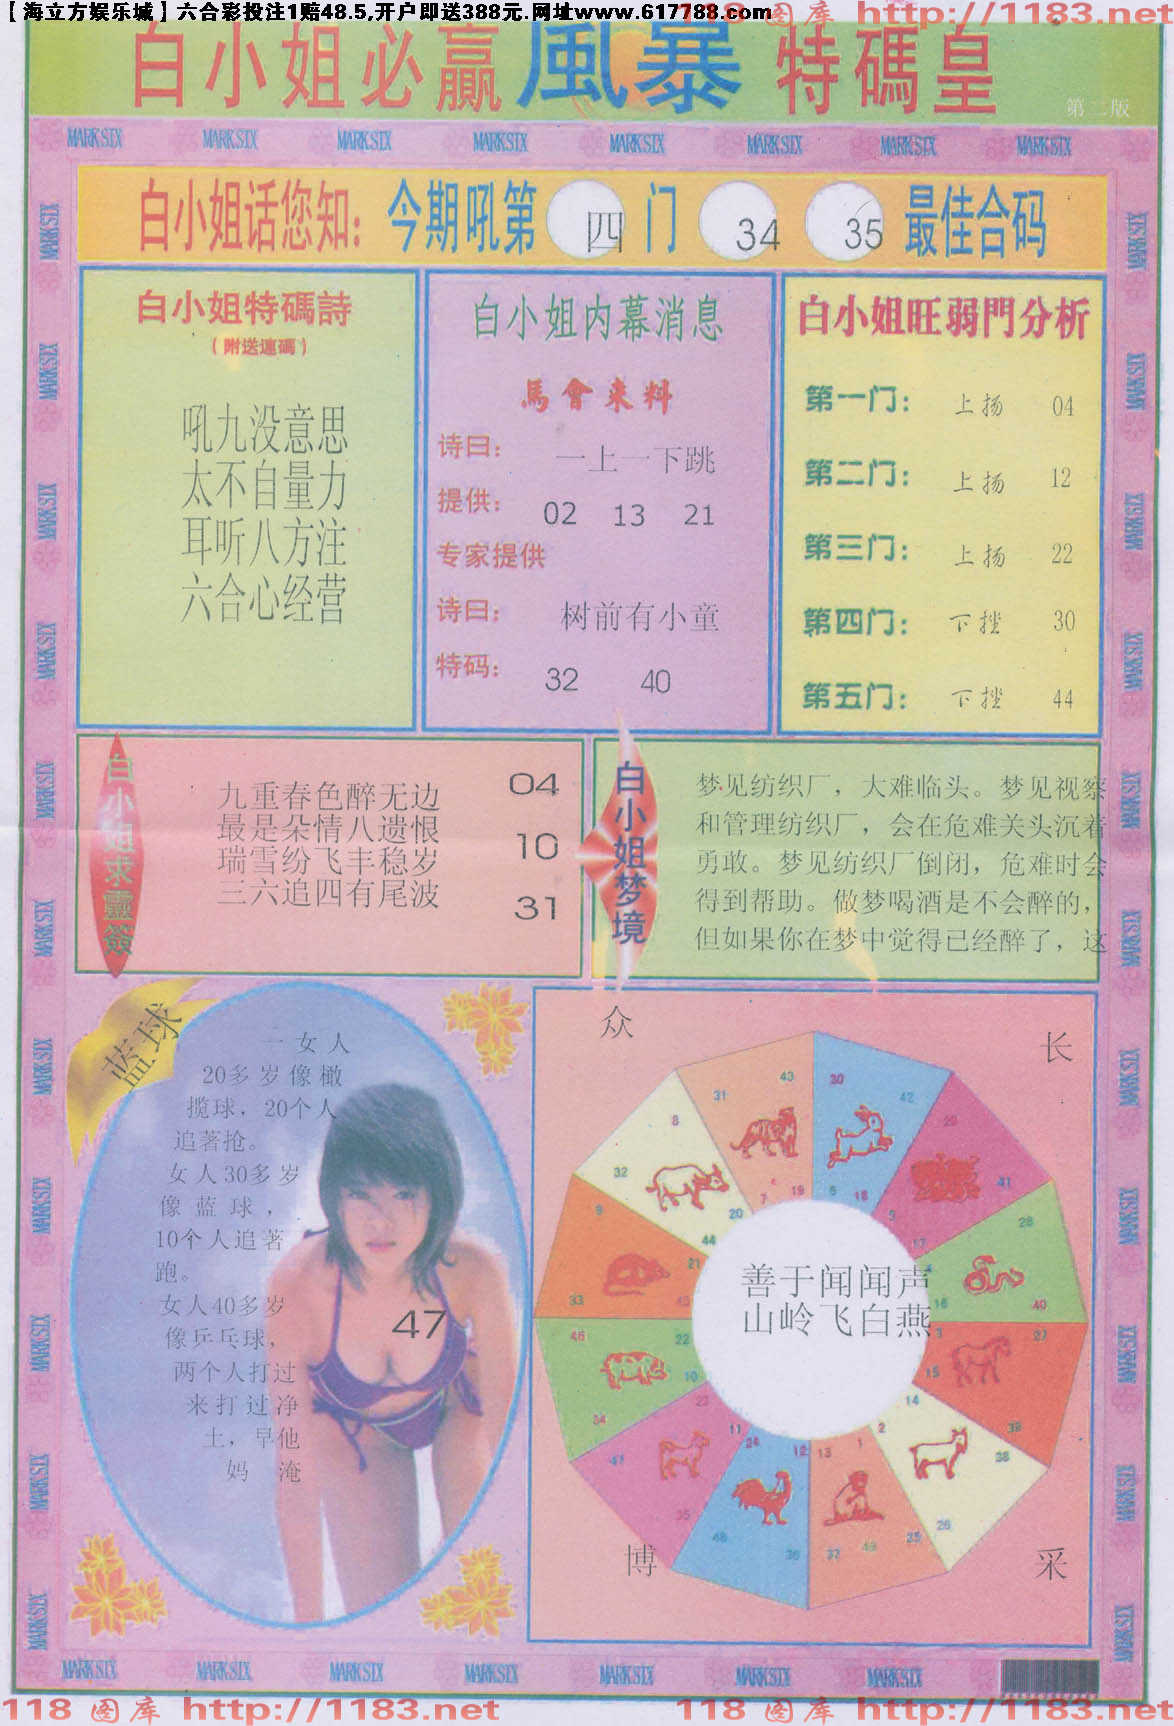 【海立方娱乐城】六合彩投注1赔48.5,开户即送388元.网址www.617788.com
118 图库 http://1183.net
白小姐必贏風暴特碼皇
第二版
MARKSIX MARKSIX MARKSIX MARKSIX MARKSIX MARKSIX MARKSIX MARKSIX
白小姐话您知: 今期吼第 四 门 34 35 最佳合码
白小姐特碼詩
(附送連碼)
吼九没意思
太不自量力
耳听八方注
六合心经营
白小姐内幕消息
馬會来料
诗曰: 一上一下跳
提供: 02 13 21
专家提供
诗曰: 树前有小童
特码: 32 40
白小姐旺弱門分析
第一门: 上扬 04
第二门: 上扬 12
第三门: 上扬 22
第四门: 下挫 30
第五门: 下挫 44
白小姐求靈簽
九重春色醉无边
最是朵情八遗恨
瑞雪纷飞丰稳岁
三六追四有尾波
04
10
31
白小姐梦境
梦见纺织厂，大难临头。梦见视察
和管理纺织厂，会在危难关头沉着
勇敢。梦见纺织厂倒闭，危难时会
得到帮助。做梦喝酒是不会醉的，
但如果你在梦中觉得已经醉了，这
蓝球
一女人
20多岁像橄
揽球，20个人
追著抢。
女人30多岁
像蓝球，
10个人追著
跑。
女人40多岁
像乒乓球，
两个人打过
来打过净
土，早他
妈 淹
47
众
长
善于闻闻声
山岭飞白燕
博
采
MARKSIX MARKSIX MARKSIX MARKSIX MARKSIX MARKSIX MARKSIX
118 图库 http://1183.net
118 图库 http://1183.net